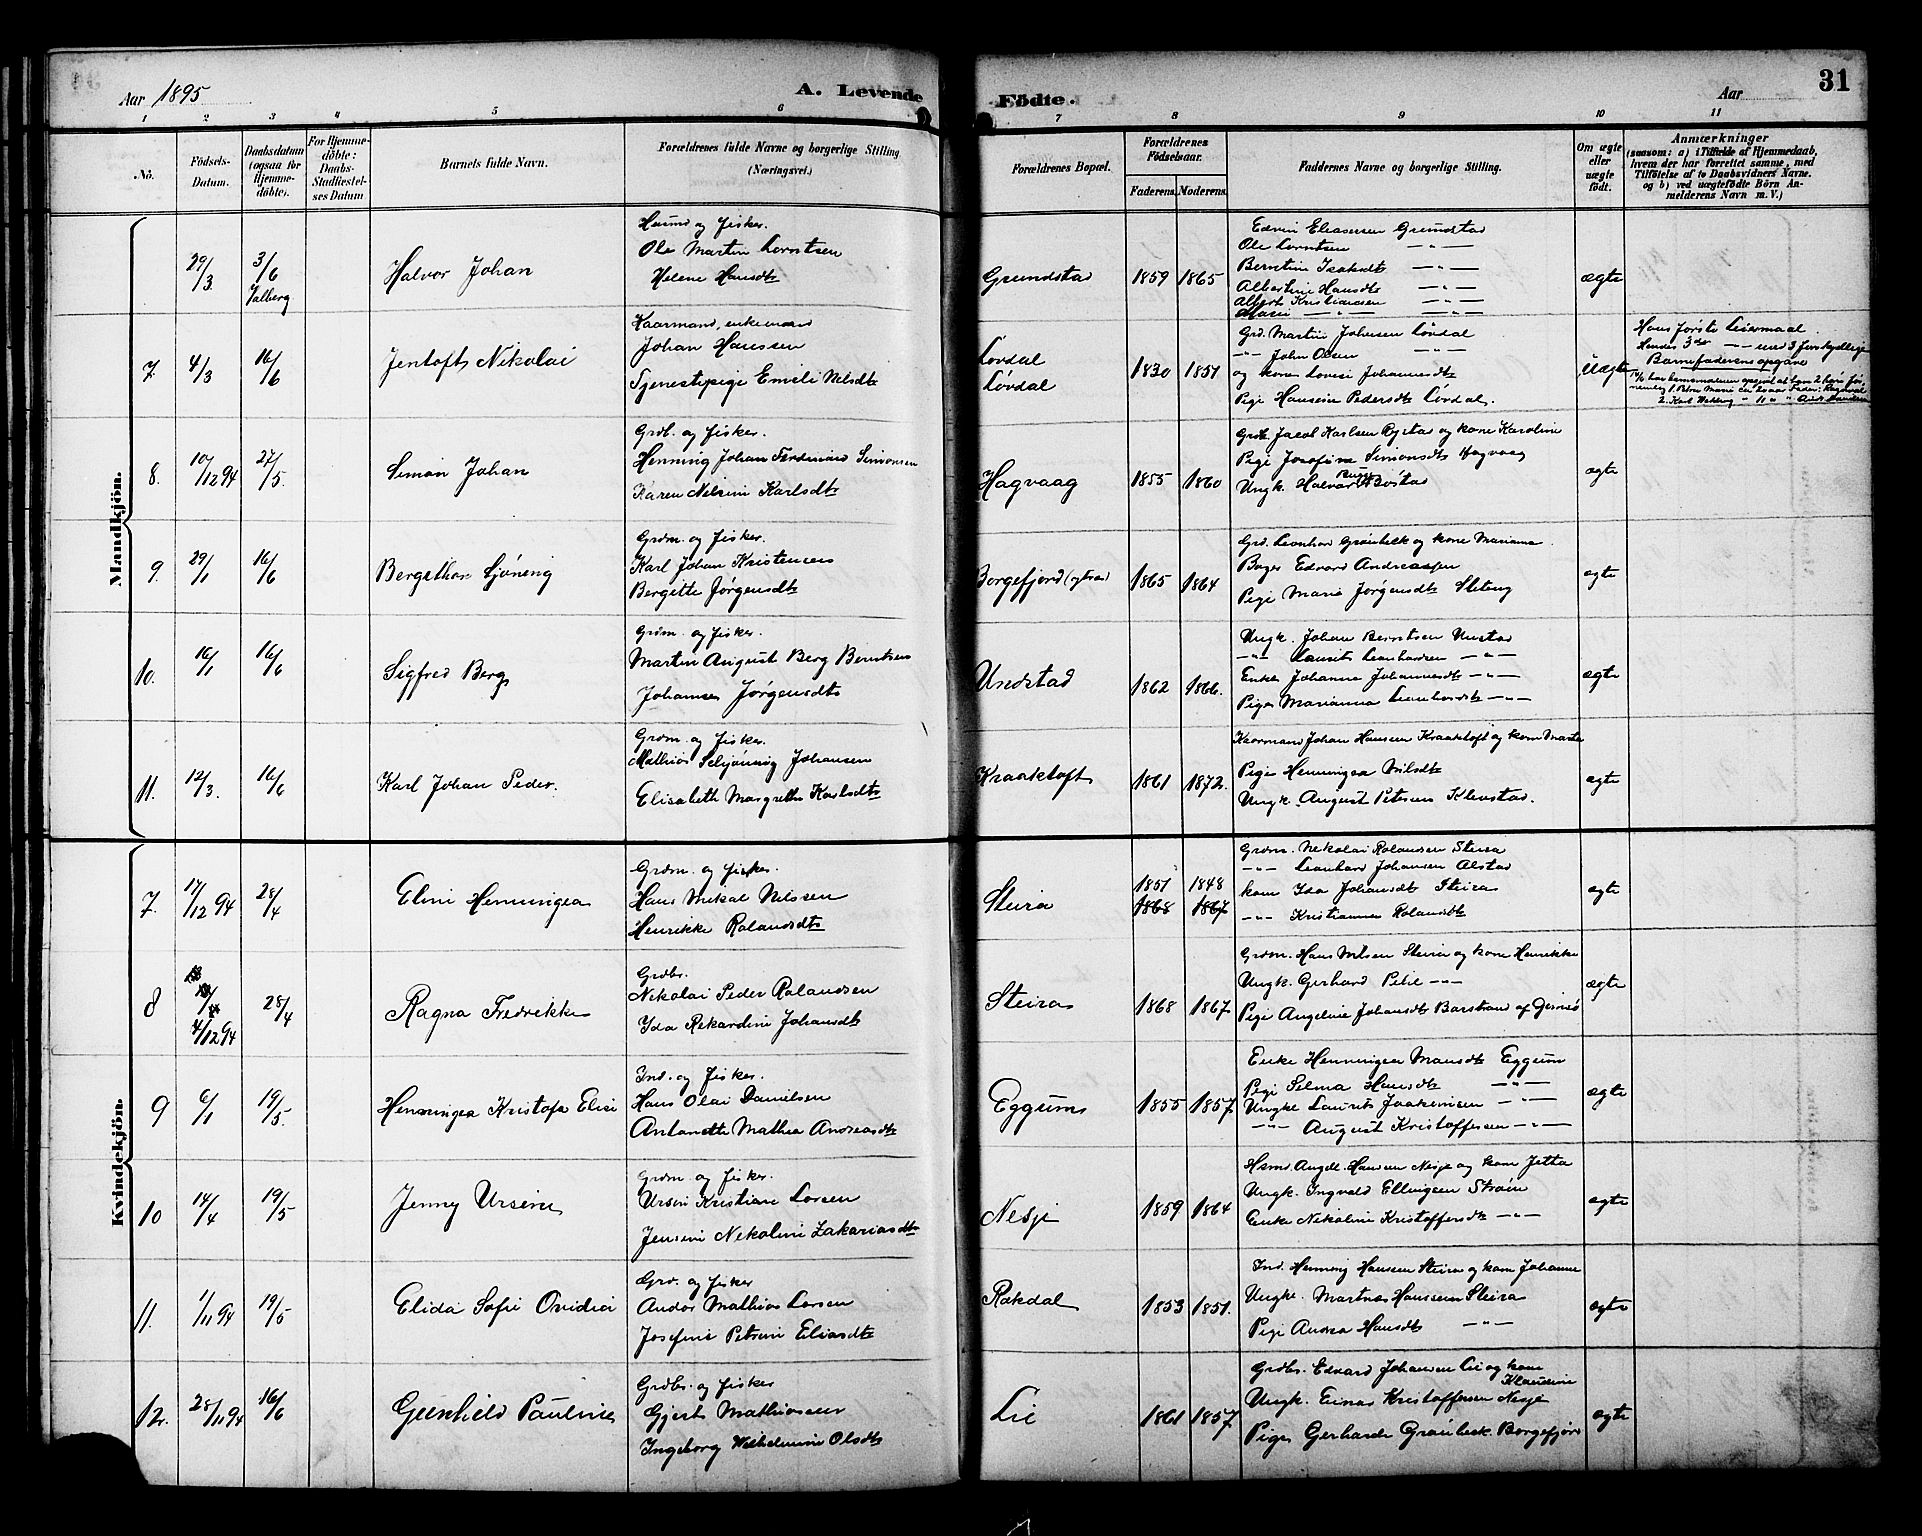 Aar 1895
A. Levende
Fødte.
Aar
31
1 2 3 4 5 6 7 8 9 10 11
No.
Födsels-Datum.
Daabsdatum (ogsaa for Hjemmedöbte).
For Hjemmedöbte: Daabs-Stadfæstelses Datum
Barnets fulde Navn.
Forældrenes fulde Navne og borgerlige Stilling (Næringsvei.)
Forældrenes Bopæl.
Forældrenes Födselsaar.
Faderens. Moderens.
Faddernes Navne og borgerlige Stilling.
Om ægte eller uægte födt.
Anmærkninger
(saasom: a) i Tilfælde af Hjemmedaab, hvem der har forrettet samme, med Tilföielse af to Daabsvidners Navne. og b) ved uægtefödte Börn Anmelderens Navn m. V.)
Mandkjön.
29/3 3/6 Valberg Halvor Johan
Husmd og fisker.
Ole Martin Lorntsen
Helene Hansdtr
Grundstad 1859 1865
Edvin Eleasersen Grundstad
Ole Lorntsen —"—
Berntine Isaksdtr —"—
Albertine Hansdtr —"—
Albert Kristiansen —"—
ægte
7. 4/3 16/6 Jentoft Nikolai
Kaarmand, enkemand
Johan Hanssen
Tjenestepige Emelie Nilsdtr
Løvdal
Løvdal
1830 1851
Grd. Martin Johnsen Løvdal
—"— John Olsen —"—
og kone Lovise Johannesdtr
Pige Hansine Pedersdtr Løvdal.
Uægte
Hans første Leiermaal.
Hendes 3die —"— med 3 forskjellige
Barnefaderens opgave
8. 10/12 94 27/5. Simon Johan
Grdb. og fisker.
Henning Johan Ferdinand Simonsen
Karen Nelsine Karlsdtr
Hagvaag 1855 1860
Grdb. Jacob Karlsen Rystad og kone Karoline
Pige Josefine Simonsdtr Hagvaag
Ungk. Halvar
ægte
9. 29/1 16/6 Bergithon Sjøning
Grdm. og fisker.
Karl Johan Kristensen
Bergitte Jørgensdtr
Borgefjord 1865 1864
Grd. Leonhard Grønbeck og kone Mariane.
Bager Edvard Andreassen
Pige Marie Jørgensdtr
ægte
10. 16/1 16/6 Sigfred Berg
Grdm. og fisker.
Martin August Berg Berntsen
Johanna Jørgensdtr
Undstad 1862 1866.
Ungk. Johan Berntsen Unstad
—"— Laurits Leonhardsen —"—
Enke Johanna Johannesdtr —"—
Pige Marianna Leonhardsdtr —"—
ægte
11. 12/3. 16/6 Karl Johan Peder.
Grdm. og fisker.
Mathias Schjønning Johansen
Elisabeth Margrethe Karlsdtr
Kraaktoft 1861 1872.
Kaarmand Johan Hansen Kraaktoft og kone Marta
Pige Henningea Nilsdtr
Ungk. August Petersen Klevstad.
ægte
Kvindekjön.
7. 17/12 94 28/4 Eline Henningea
Grdm. og fisker.
Hans Mikal Nilssen
Henrikke Rolandsdtr
Steira
1851 1848
1868 1867
Grdm. Nikolai Rolandsen Steira
—"— Leonhard Johansen Alstad
kone Ida Johansdtr Steira
—"— Kristianna Rolandsdtr
ægte
8 4/12 94 28/4 Ragna Fredrikke
Grdbr.
Nikolai Peder Rolandsen
Ida Rekardine Johansdtr
Steira 1868 1867
Grdm. Hans Nilsen Steira og kone Henrikke
Ungk. Gerhard —"—
Pige Angelvie Johansdtr Barstrand af Gimsø
ægte
9 6/1 19/5. Henningea Kristofa Elise
Ind. og fisker.
Hans Olai Danielsen
Antonette Mathea Andreasdtr
Eggum 1855 1857.
Enke Henningea Mansdtr Eggum
Pige Selma Hansdtr —"—
Ungke Laurits Joakimsen —"—
—"— August Kristoffersen —"—
ægte
10 14/4 19/5 Jenny Ursine
Grdm og fisker.
Ursin Kristian Lorsen
Jensine Nikoline Zakariasdtr
Nesje 1859 1864
Hsmd. Angel. Hansen Nesje og kone Jetta
Ungk. Ingvald Ellingsen Strøm
Enke Nikoline Kristoffersdtr —"—
ægte
11. 1/11 94 19/5 Elida Sofie Ovidia
Grd. og fisker
Andor Mathias Lorsen
Josefine Petrine Eliasdtr
Rækdal 1853 1851.
Ind. Henning Hansen Steira og kone Johanna
Ungke. Martnas Hanssen Steira
Pige Andrea Hansdtr —"—
ægte
12. 28/11 94 16/6 Gunhild Pauline
Grdbr. og fisker
Gjert Mathiassen
Ingeborg Wilhelmine Olsdtr
Lie 1861 1857.
Grdbr. Edvard Johansen Lie og kone
Klausine
Ungk. Einar Kristoffersen Nesje
Pige Gerharda Grønbeck Borgefjord
ægte